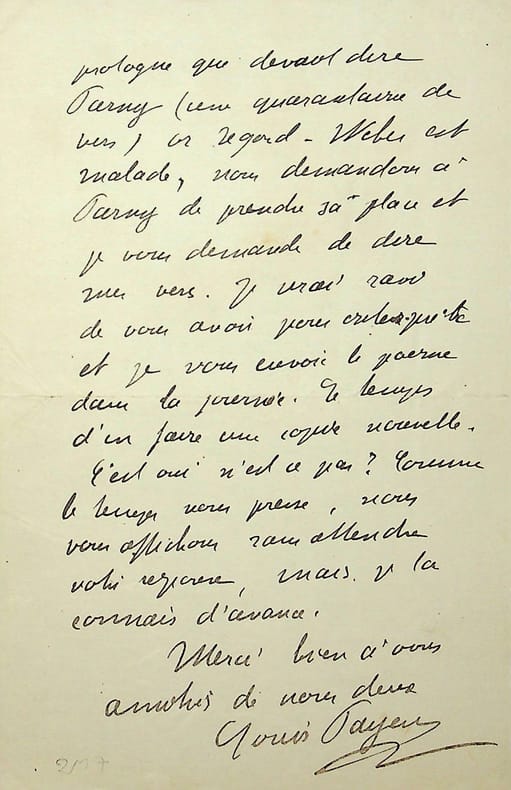 prologue que devait dire
Parny (une quarantaine de
vers) or Segond-Weber est
malade, nous demandons à
Parny de prendre sa place et
je vous demande de dire
mes vers. Je serai ravi
de vous avoir pour interprète
et je vous envoie le poème
dans la journée. Le temps
d'en faire une copie nouvelle.
C'est oui n'est ce pas? Comme
le temps nous presse, nous
vous affichons sans attendre
votre réponse, mais je la
connais d'avance.
Merci bien à vous
amitiés de nous deux
Louis Payen